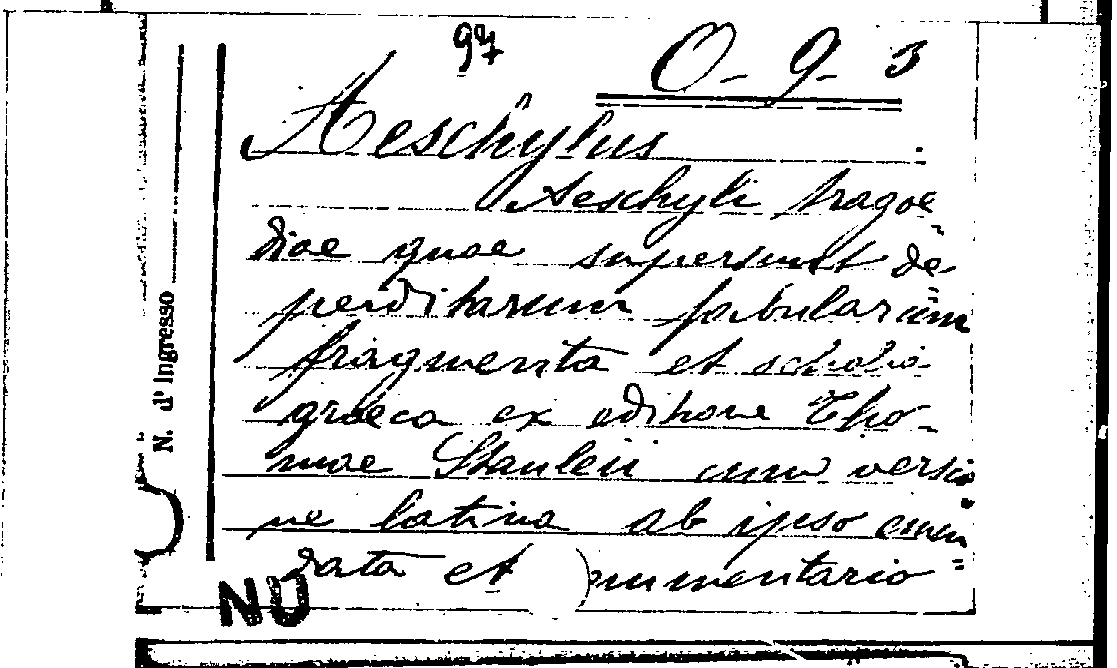 97 O-9-3
Aeschylus
Aeschyli tragoe-
diae quae supersunt de-
perditarum fabularum
fragmenta et scholia
graeca ex editione Tho-
mae Stanleii cum versio-
ne latina ab ipso emen-
data et ommentario
N. d'Ingresso
NO